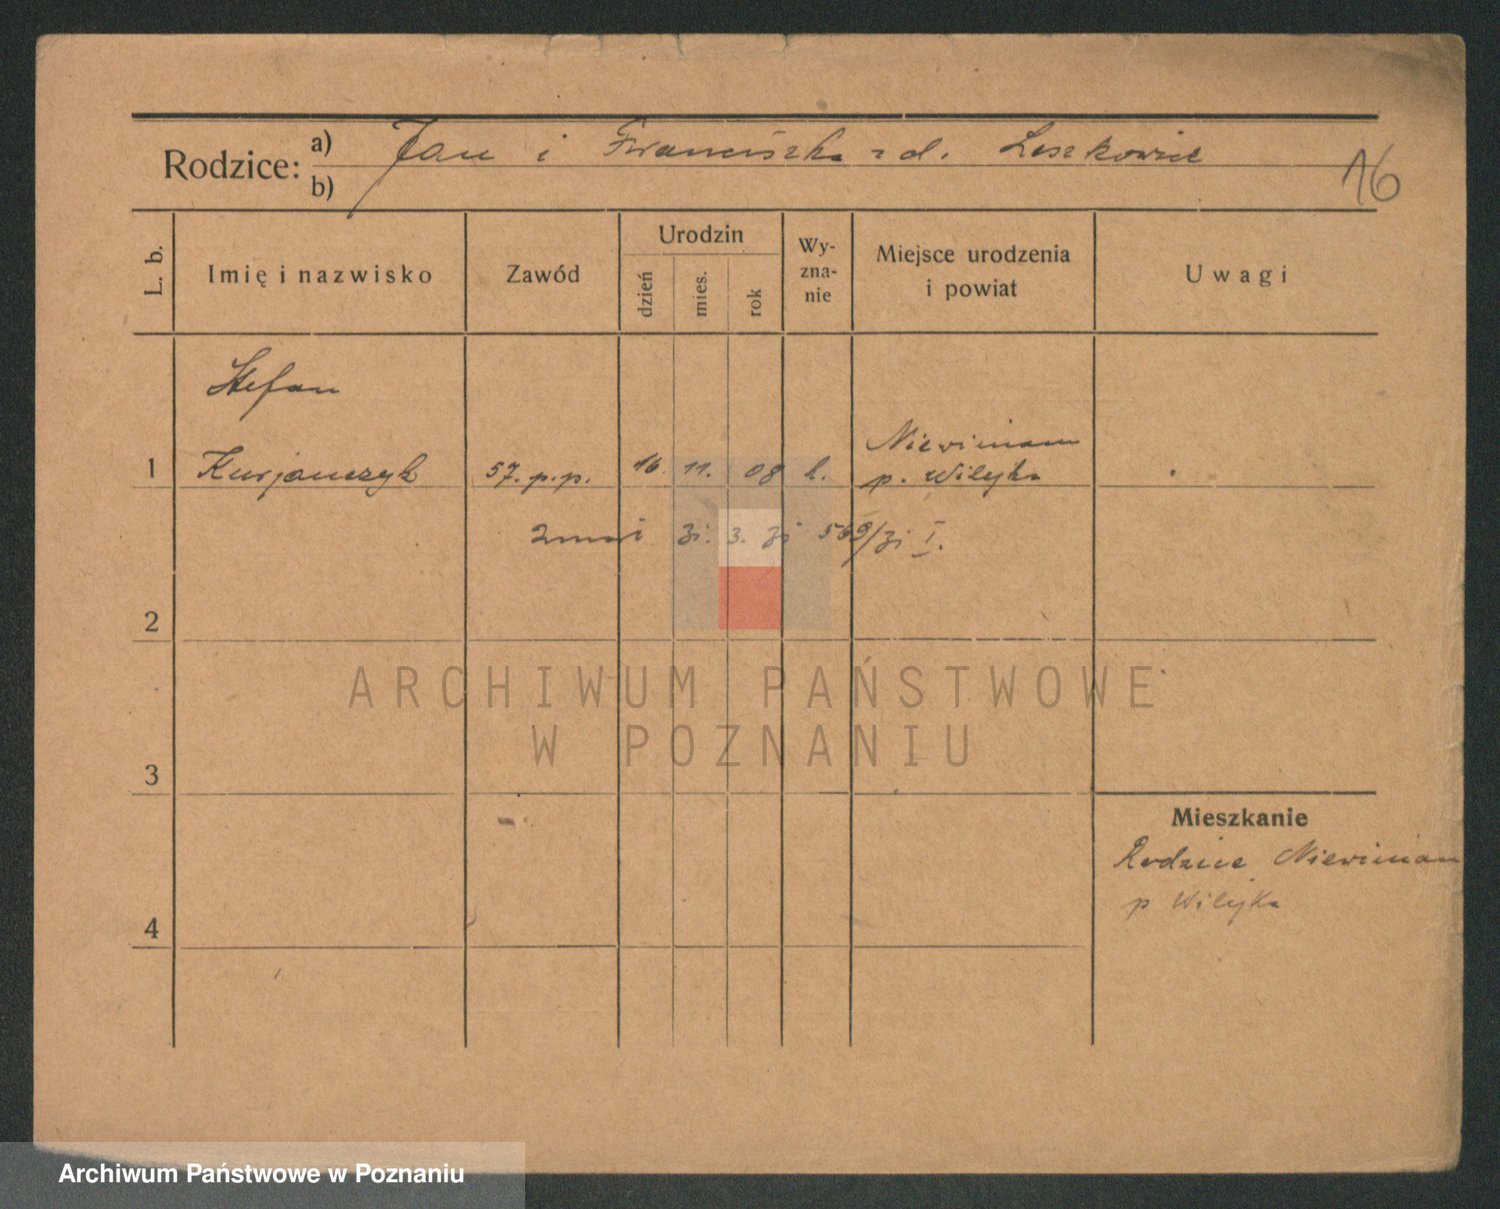 Rodzice: a) Jan i Franciszka z d. Leszkowicz
b)
16
L. b.
Imię i nazwisko
Zawód
Urodzin
dzień
mies.
rok
Wy-
zna-
nie
Miejsce urodzenia
i powiat
Uwagi
Stefan
1 Kurjanczyk 57. p.p. 16 11. 08 k. Niewiniam
p. Wilejka
zmarł 31. 3. 31 569/31 I.
2
ARCHIWUM PAŃSTWOWE
W POZNANIU
3
Mieszkanie
Rodzice Niewiniam
p Wilejka
4
Archiwum Państwowe w Poznaniu